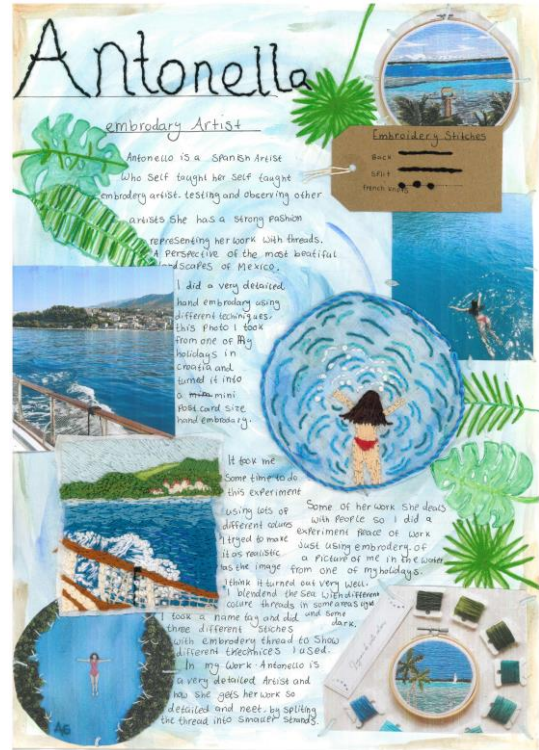 Antonella
embrodary Artist
Embroidery Stitches
Back
split
french knots
Antonello is a spanish Artist
who self taught her self taught
embrodery artist. testing and observing other
artists she has a strong pashion
representing her work with threads.
A perspective of the most beatiful
landscapes of Mexico.
I did a very detailed
hand embrodary using
different techniques.
this photo I took
from one of my
holidays in
croatia and
turned it into
a mini
post card size
hand embrodary.
It took me
Some time to do
this experiment
using lots of
different colures
I tryed to make
it as realistic
as the image
I think it turned out very well.
I blendend the Sea with different
colure threads in some areas light
and some dark.
Some of her work she deals
with people so I did a
experiment peace of work
Just using embrodery. of
a picture of me in the water
from one of my holidays.
I took a name tag and did
three different stiches
with embrodery thread to show
different thechnices I used.
In my work Antonello is
a very detailed Artist and
how she gets her work so
detailed and neet. by spliting
the thread into smaller strands.
AG